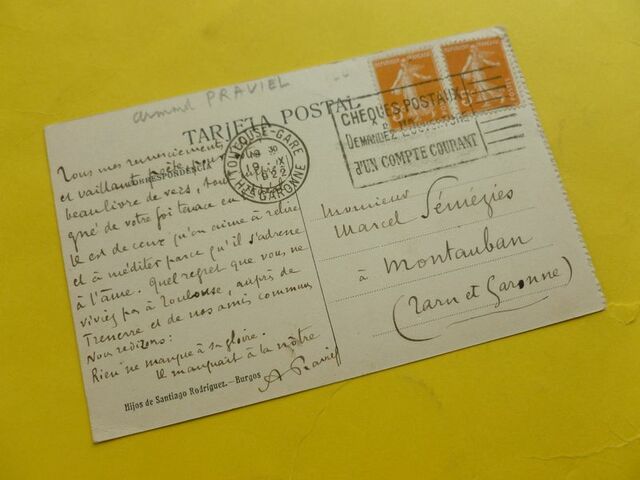 Armand PRAVIEL
TARJETA POSTAL
CORRESPONDENCIA
TOULOUSE-GARE
19 30
19 IX
1922
Hte GARONNE
CHEQUES POSTAUX
DEMANDEZ L'OUVERTURE
D'UN COMPTE COURANT
Tous mes remerciements
et vaillant poète, pour
beau livre de vers, tout
gné de votre foi tenace en
Il est de ceux qu'on aime à relire
et à méditer parce qu'il s'adresse
à l'âme. Quel regret que vous ne
viviez pas à Toulouse, auprès de
et de nos amis communs
Nous redirons:
Rien ne manque à sa gloire.
Il manquait à la nôtre
A Praviel
Monsieur
Marcel Sémézies
à Montauban
(Tarn et Garonne)
Hijos de Santiago Rodríguez.—Burgos